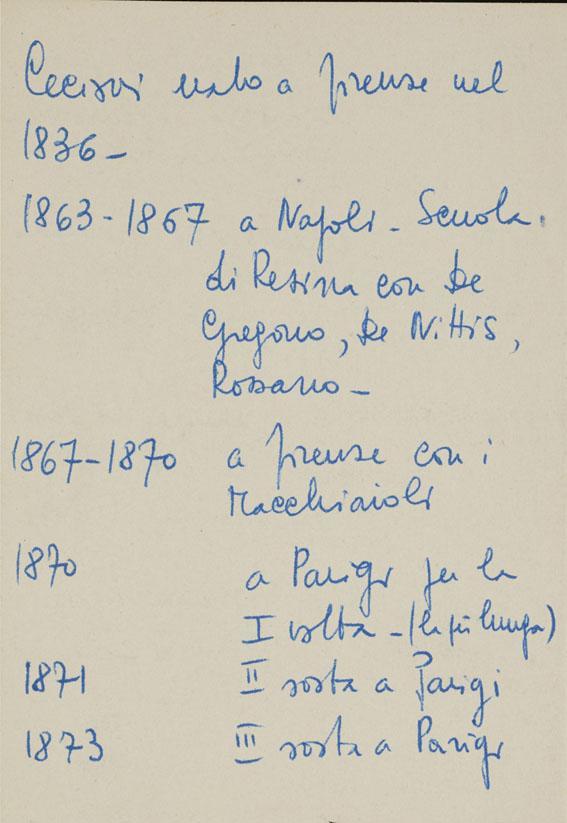 Cecioni nato a firenze nel
1836 -
1863 - 1867 a Napoli - Scuola
di Resina con De
Gregorio, De Nittis,
Rossano -
1867 - 1870 a firenze con i
Macchiaioli
1870 a Parigi per la
I volta - (la più lunga)
1871 II sosta a Parigi
1873 III sosta a Parigi